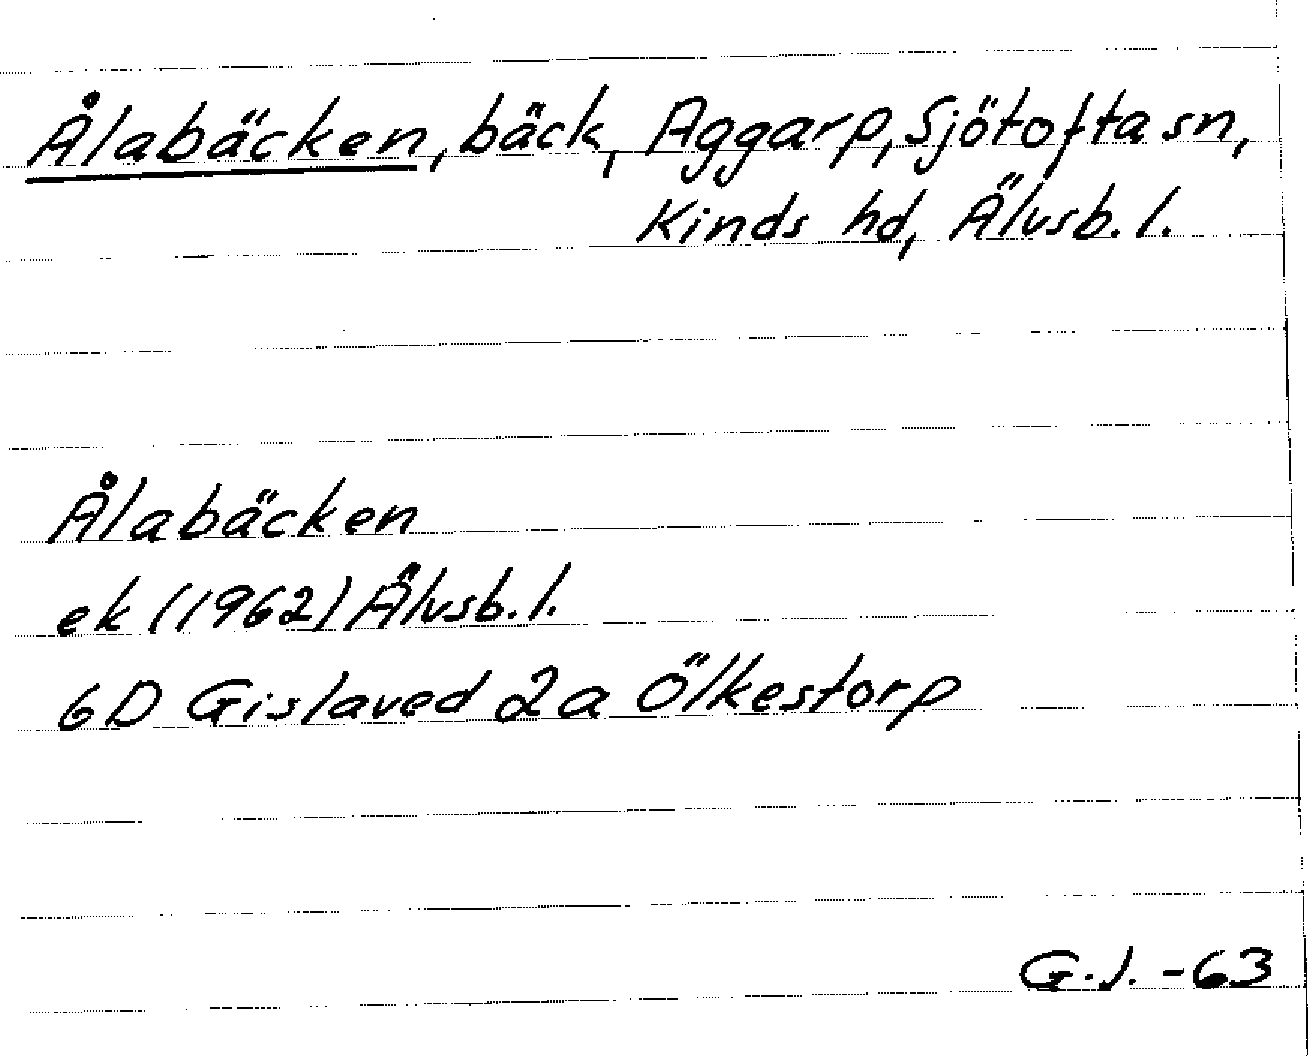 Ålabäcken, bäck, Aggarp, Sjötofta sn,
Kinds hd, Älvsb. l.
Ålabäcken
ek (1962) Älvsb. l.
6D Gislaved 2a Ölkestorp
G.J. -63